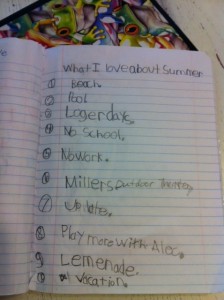 What I love about Summer
① Beach.
② Pool
③ Loger days.
④ No School.
⑤ No work.
⑥ Millers Outdoor Theatre.
⑦ Up late.
⑧ Play more with Alec.
⑨ Lemonade.
⑩ vacation.